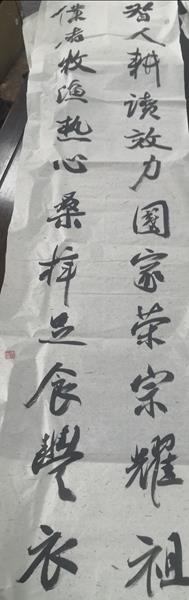 智人耕读效力国家荣宗耀祖
仆者牧渔热心桑梓足食丰衣